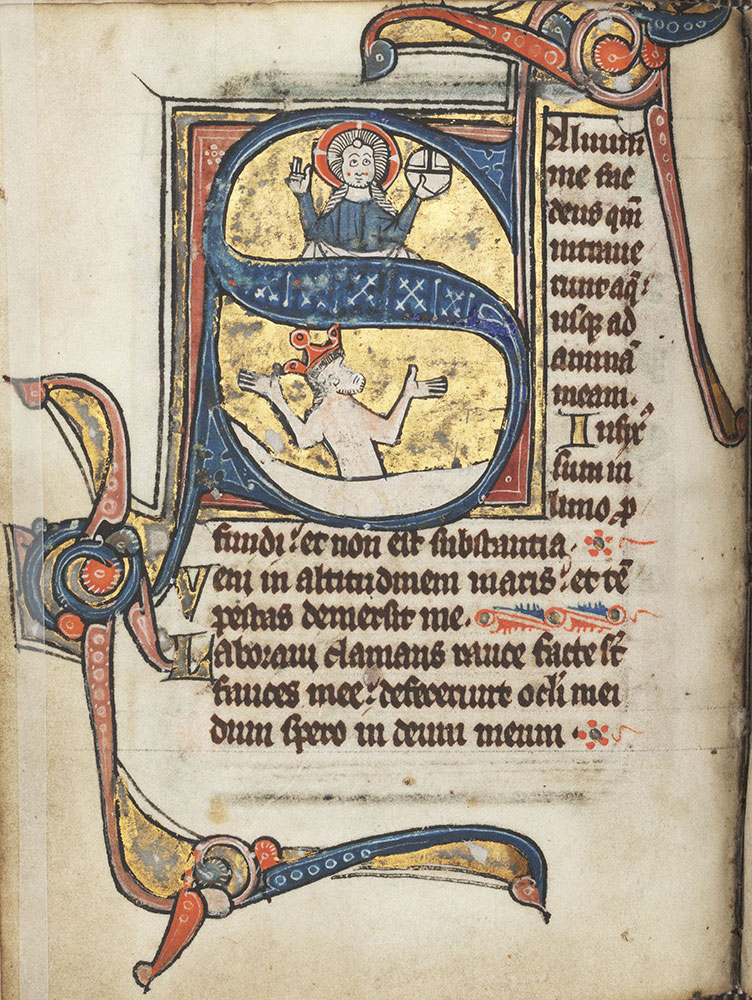 Saluum
me fac
deus qm̄
intraue
runt aq̄:
usq; ad
animā
meam.
Infix̄
sum in
limo ꝓ
fundi: et non est substantia.
Veni in altitudinem maris: et tē
pestas demersit me.
Laboraui clamans rauce facte st̄
fauces mee: defecerunt ocl̄i mei
dum spero in deum meum.